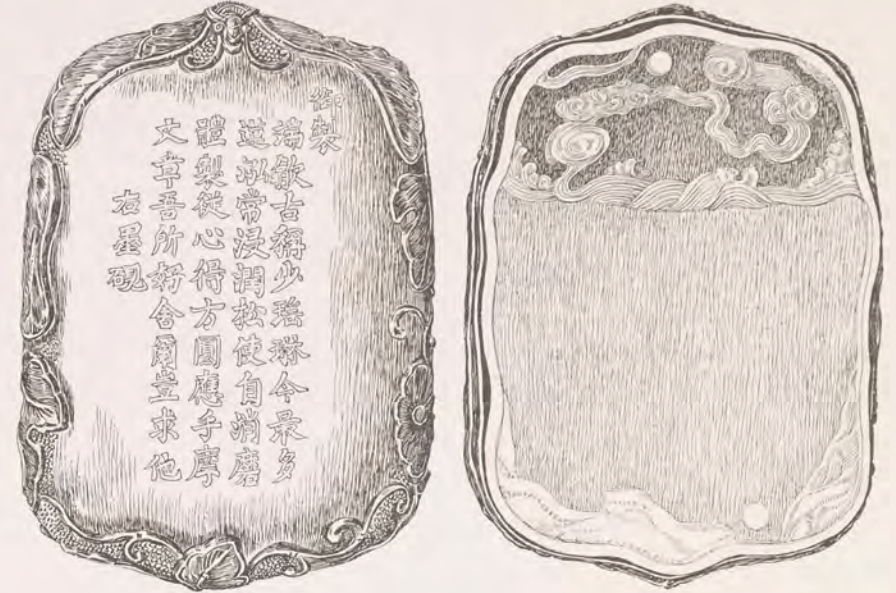 御製
端歙古稱少瑤琳今最多
蓮泓常浸潤松使自消磨
體製從心得方圓應手摩
文章吾所好舍爾豈求他
右墨硯